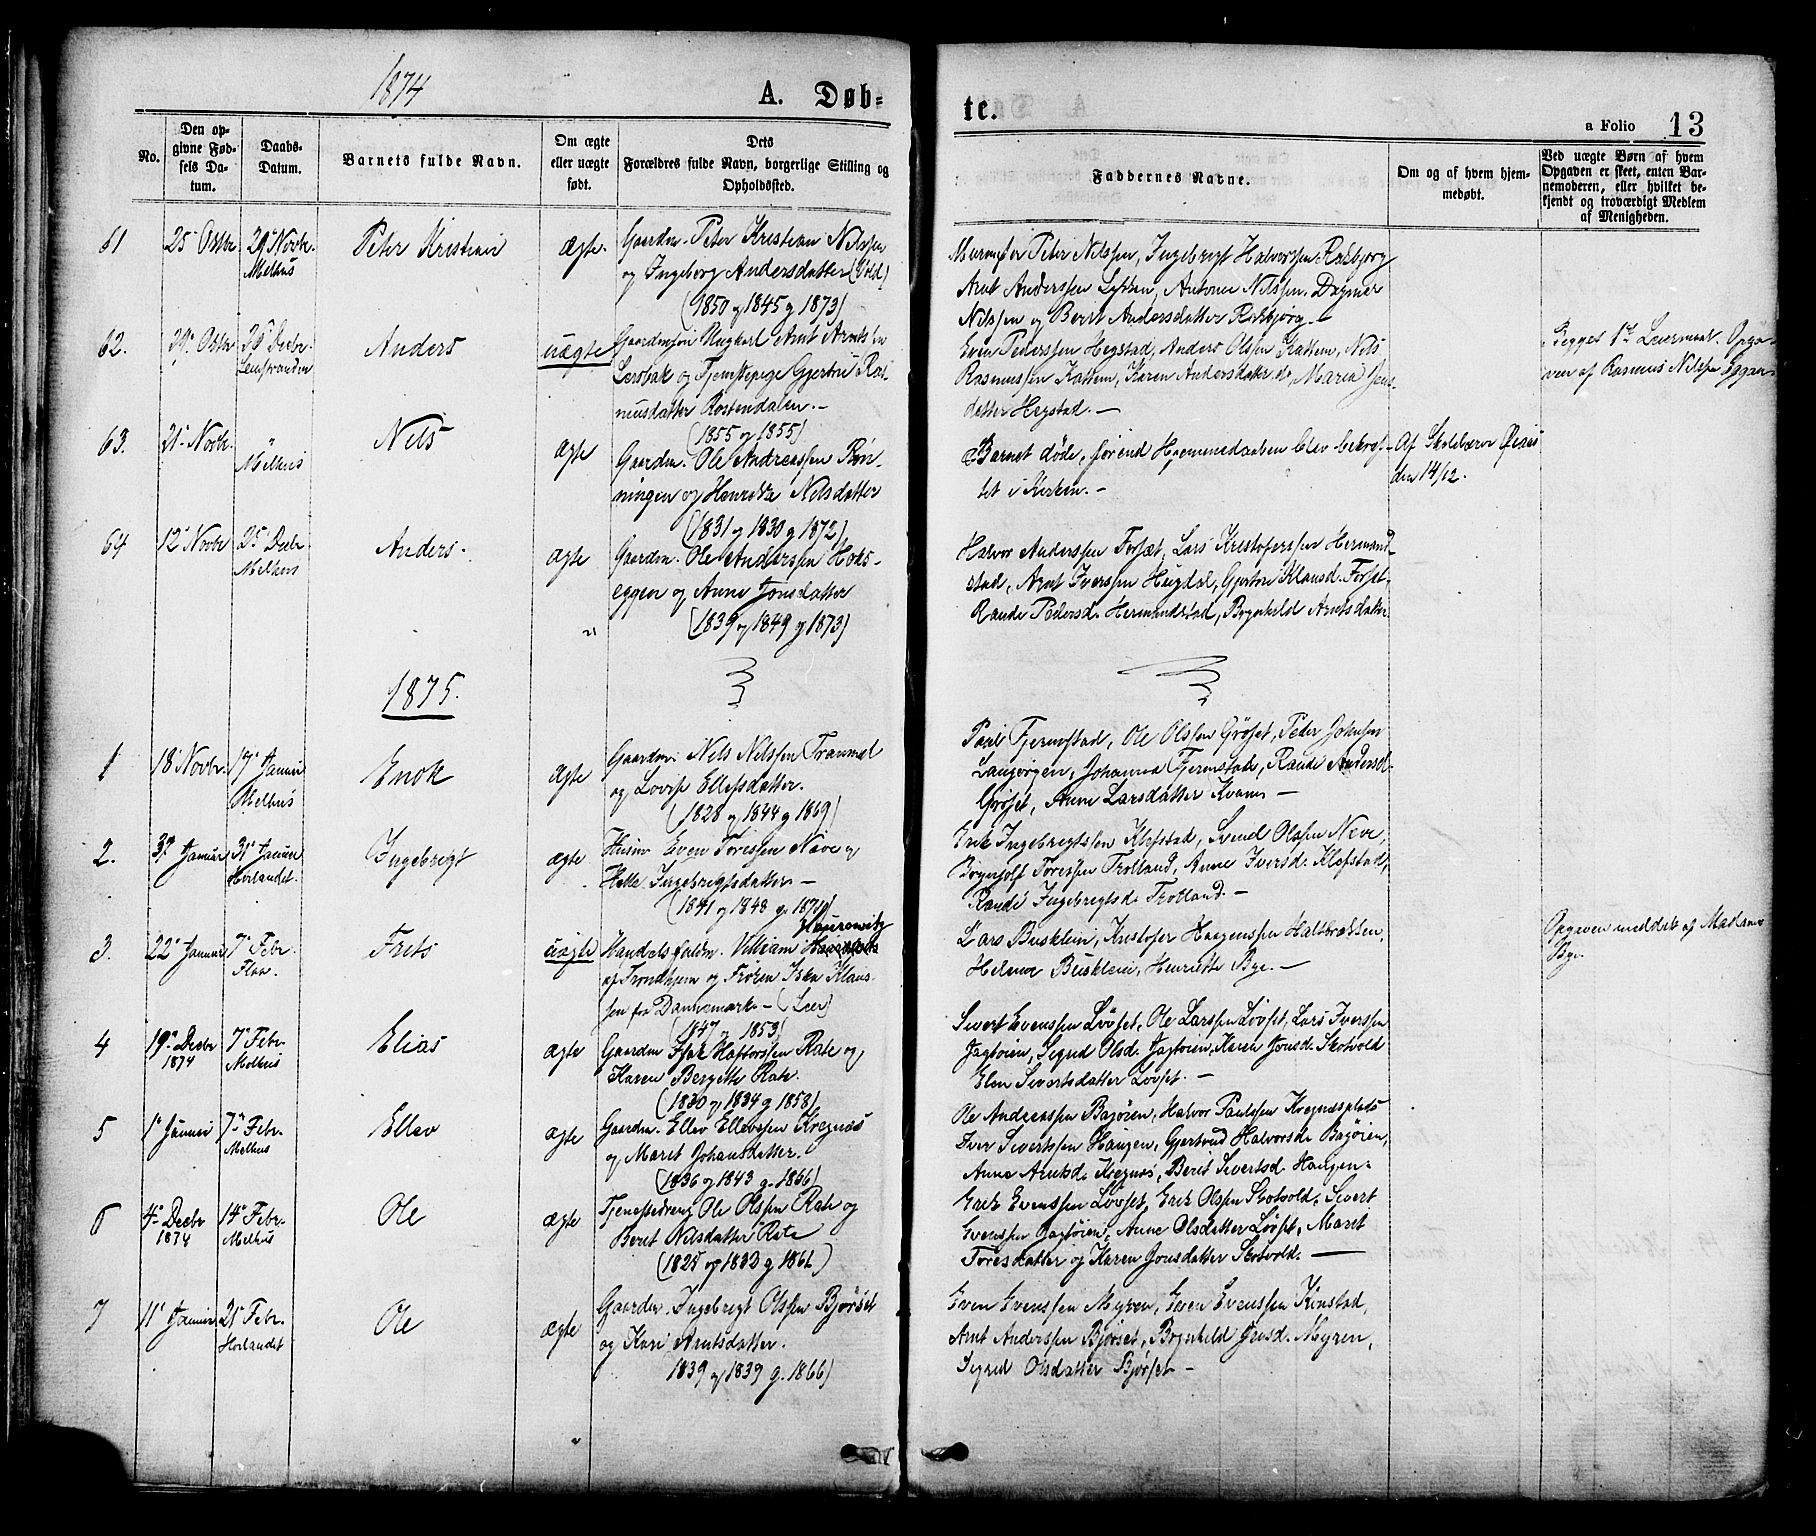 1874
A. Døb-
te.
a Folio 13
No.
Den op-
givne Fød-
sels Da-
tum.
Daabs-
Datum.
Barnets fulde Navn.
Om ægte
eller uægte
født.
Dets
Forældres fulde Navn, borgerlige Stilling og
Opholdssted.
Faddernes Navne.
Om og af hvem hjem-
medøbt.
Ved uægte Børn af hvem
Opgaven er skeet, enten Bar-
nemoderen, eller hvilket be-
kjendt og troværdigt Medlem
af Menigheden.
61
25 Octbr
29 Novbr.
Melhus
Peter Kristian
ægte.
Gaardm. Peter Kristian Nilssen
og Ingeborg Andersdatter (Vold)
(1850 og 1845 g 1873)
Peter Nilssen, Ingebrigt Halvorssen Rakbjorg
Arnt Anderssen Lykken, Antone Nilssen, Dagmar
Nilssen og Berit Andersdatter Rakbjorg.
62.
29 Octbr
26 Decbr.
Leinstranden
Anders
uægte
Gaardmssøn Ungkarl Arnt Arntsen
Lersbak og Tjenestepige Gjertru Ras-
musdatter Rostendalen.-
(1855 og 1855)
Even Pederssen Hegstad, Anders Olssen Kattem, Nils
Rasmussen Kattem, Karen Andersdatter do, Marea Jens-
datter Hegstad.-
Begges 1ste Leiermaal. Opga-
ven af Rasmus Nilssen Eggan
63.
21 Novbr.
"
Melhus
Nils
ægte
Gaardm. Ole Andreassen Røn-
ningen og Henrikke Nilsdatter
(1831 og 1830 g 1872)
Barnet døde, førend Hjemmedaaben blev bekræf-
tet i Kirken.-
Af Skolelærer
den 14/12.
64
12 Novbr
25 Decbr
Melhus
Anders.
ægte
Gaardm. Ole Anderssen Hols-
eggen og Anne Jonsdatter
(1839 og 1849 g 1873)
Halvor Anderssen Forset, Lars Kristoferssen Hermand-
stad, Arnt Iverssen Hugdal, Gjertru Klausd. Forset-
Rande Pedersd. Hermandstad, Brynhild Arntsdatter
1875.
1
18 Novbr.
17 Januar
Melhus
Enok
ægte
Gaardm. Nils Nilssen Tranmel
og Lovise Ellefsdatter.
(1828 og 1844 g 1869)
Paul Tjernstad, Ole Olssen Grøset, Peder Johnsen
Langørgen, Johanna Tjernstad, Rande Andersd.
Grøset, Anne Larsdatter Kvam -
2.
3 Januar
31 Januar
Horlandet.
Ingebrigt
ægte
Husm Even Toressen Næve og
Ingebrigtsdatter -
(1841 og 1848 g. 1871)
Erik Ingebrigtssen Klefstad, Svend Olssen Neve,
Toressen Trotland, Anne Iversd. Klefstad,
Rande Ingebrigtsd Trotland.-
3.
22 Januar
7 Febr.
Flaa.
Frits
uægte
Handelsfuldm. Viliam
af Trondhjem og Frøken Klaus-
sen fra Dannemark- (Leer)
(1847 og 1853)
Lars Busklein, Kristofer Haagenssen Haltbrækken,
Helene Busklein, Henriette Bye.-
Opgaven meddelt af Madame
Bye
4
19 Decbr
1874
7 Febr.
Melhus
Elias
ægte
Gaardm Haftorssen Rate og
Karen Bergitte Rate.
(1830 og 1834 g 1858)
Sivert Evenssen Løvset, Ole Larssen Løvset, Lars Iverssen
Jagtøien, Sigrid Olsd. Jagtøien, Karen Jonsd. Skotvold
Elen Sivertsdatter Løvset.-
5
1 Januar
7 Febr.
Melhus
Ellev
ægte
Gaardm. Ellev Ellevssen Kregnæs
og Marit Johansdatter.
(1836 og 1843 g. 1866)
Ole Andreassen Bagøien, Halvor Paulssen Kregnæsplads
Iver Sivertssen Haugen, Gjertrud Halvorsd. Bagøien,
Anne Arntsd. Kregnæs, Berit Sivertsd. Haugen-
6
4 Decbr
1874
14 Febr.
Melhus
Ole
ægte
Tjenestedreng Ole Olssen Rate og
Beret Nilsdatter Rate
(1825 og 1832 g 1861)
Erik Evenssen Løvset, Erik Olssen Skotvold, Sivert
Evenssen Jagtøien, Anne Olsdatter Løvset, Marit
Toresdatter og Karen Jonsdatter Skotvold.
7
11 Januar
21 Febr.
Horlandet
Ole
ægte
Gaardm. Ingebrigt Olssen Bjørset
og Kari Arntsdatter.
1839 og 1839 g. 1866)
Even Evenssen Myren, Evenssen Kinstad,
Arnt Anderssen Bjørset, Brynhild Jensd. Myren,
Sigrid Olsdatter Bjørset-